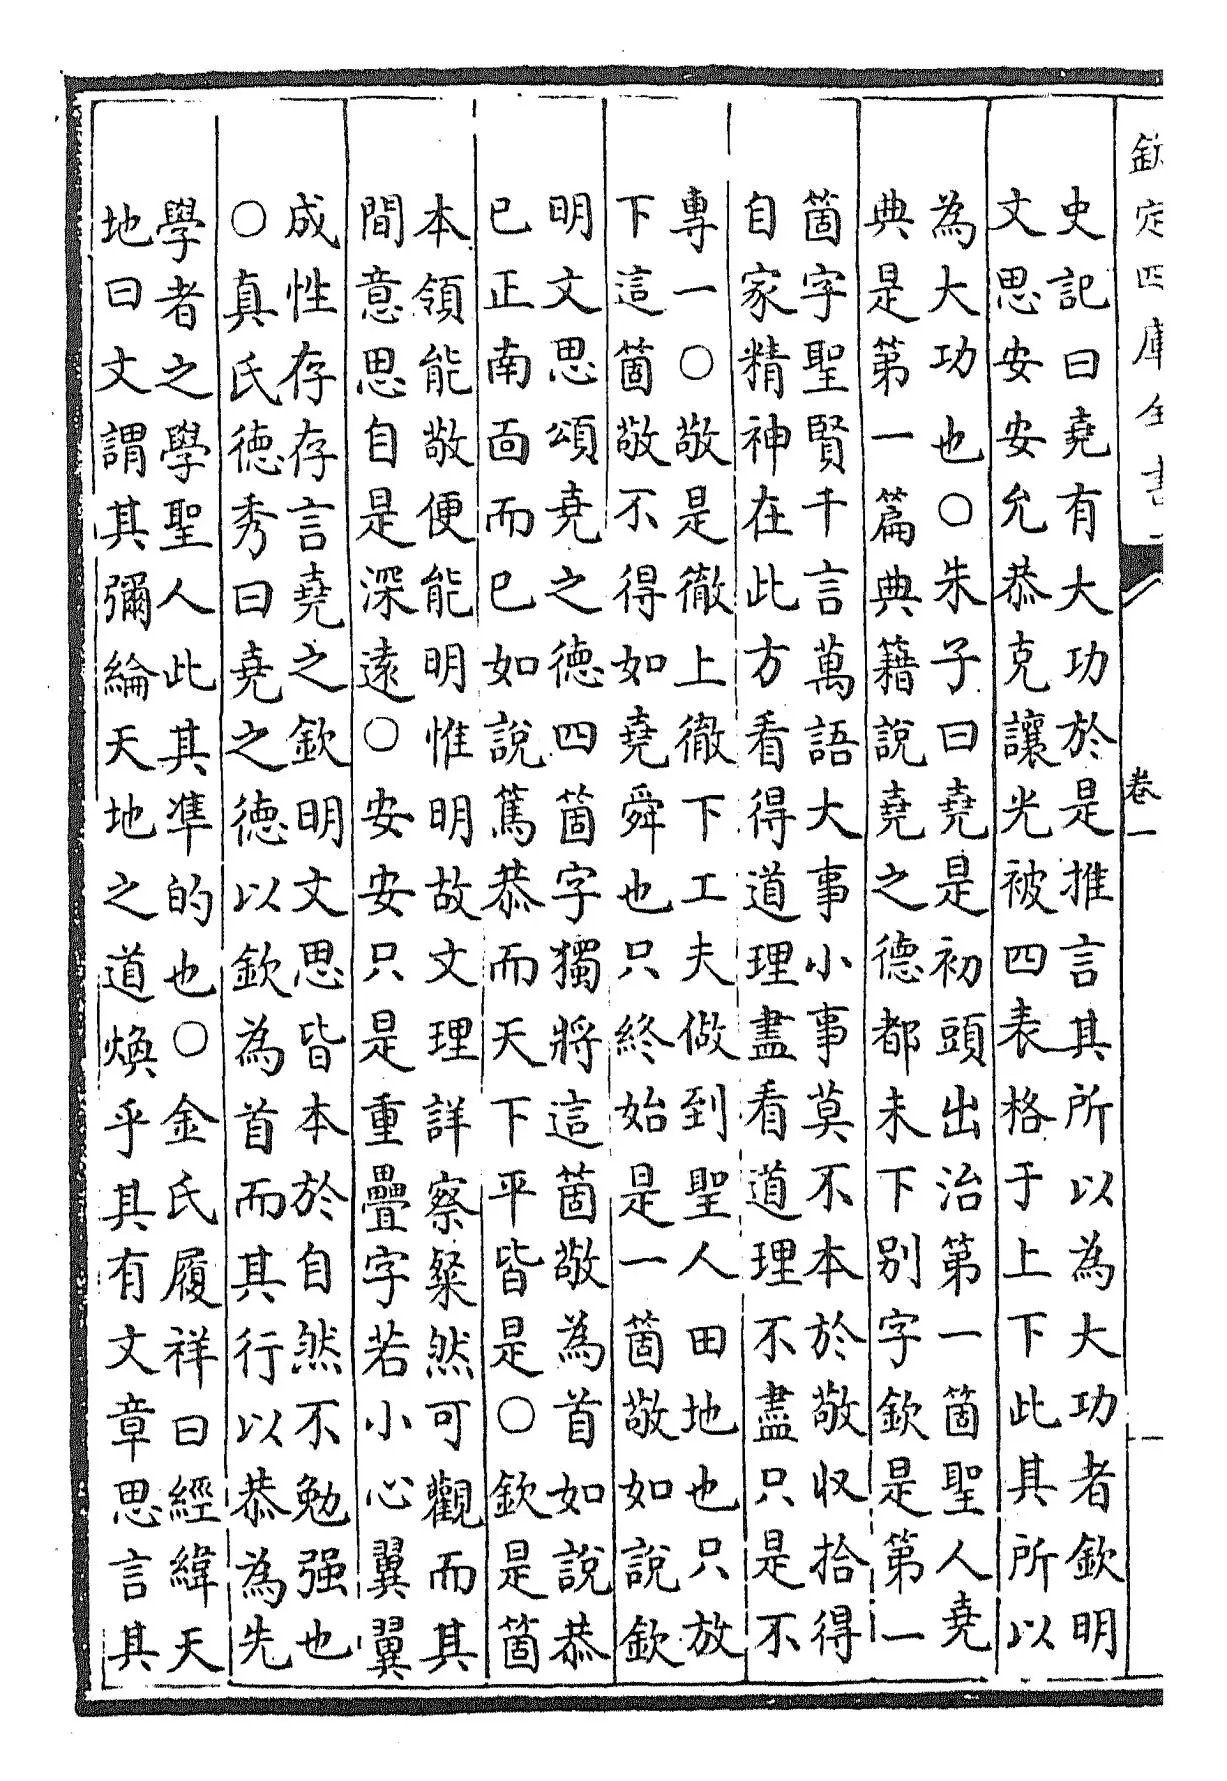 欽定四庫全書
卷一
史記曰堯有大功於是推言其所以為大功者欽明
文思安安允恭克讓光被四表格于上下此其所以
為大功也○朱子曰堯是初頭出治第一箇聖人堯
典是第一篇典籍說堯之德都未下别字欽是第一
箇字聖賢千言萬語大事小事莫不本於敬收拾得
自家精神在此方看得道理盡看道理不盡只是不
專一○敬是徹上徹下工夫做到聖人田地也只放
下這箇敬不得如堯舜也只終始是一箇敬如說欽
明文思頌堯之德四箇字獨將這箇敬為首如說恭
已正南面而已如說篤恭而天下平皆是○欽是箇
本領能敬便能明惟明故文理詳察粲然可觀而其
間意思自是深遠○安安只是重疊字若小心翼翼
成性存存言堯之欽明文思皆本於自然不勉强也
○真氏德秀曰堯之德以欽為首而其行以恭為先
學者之學聖人此其準的也○金氏履祥曰經緯天
地曰文謂其彌綸天地之道煥乎其有文章思言其